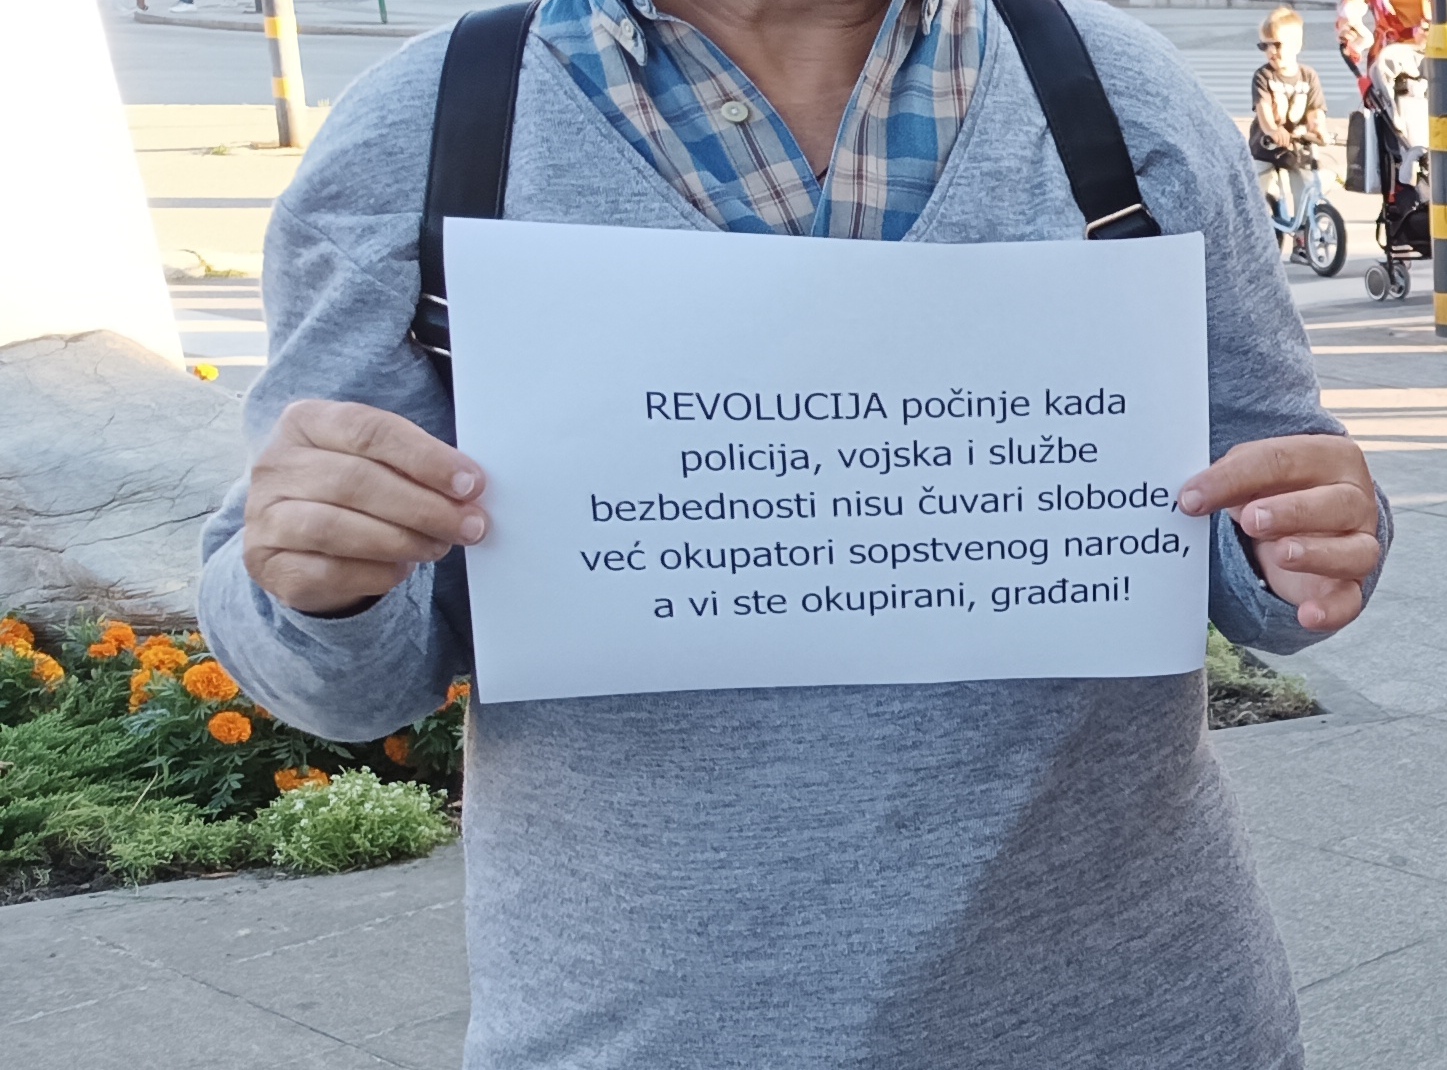 REVOLUCIJA počinje kada
policija, vojska i službe
bezbednosti nisu čuvari slobode,
već okupatori sopstvenog naroda,
a vi ste okupirani, građani!